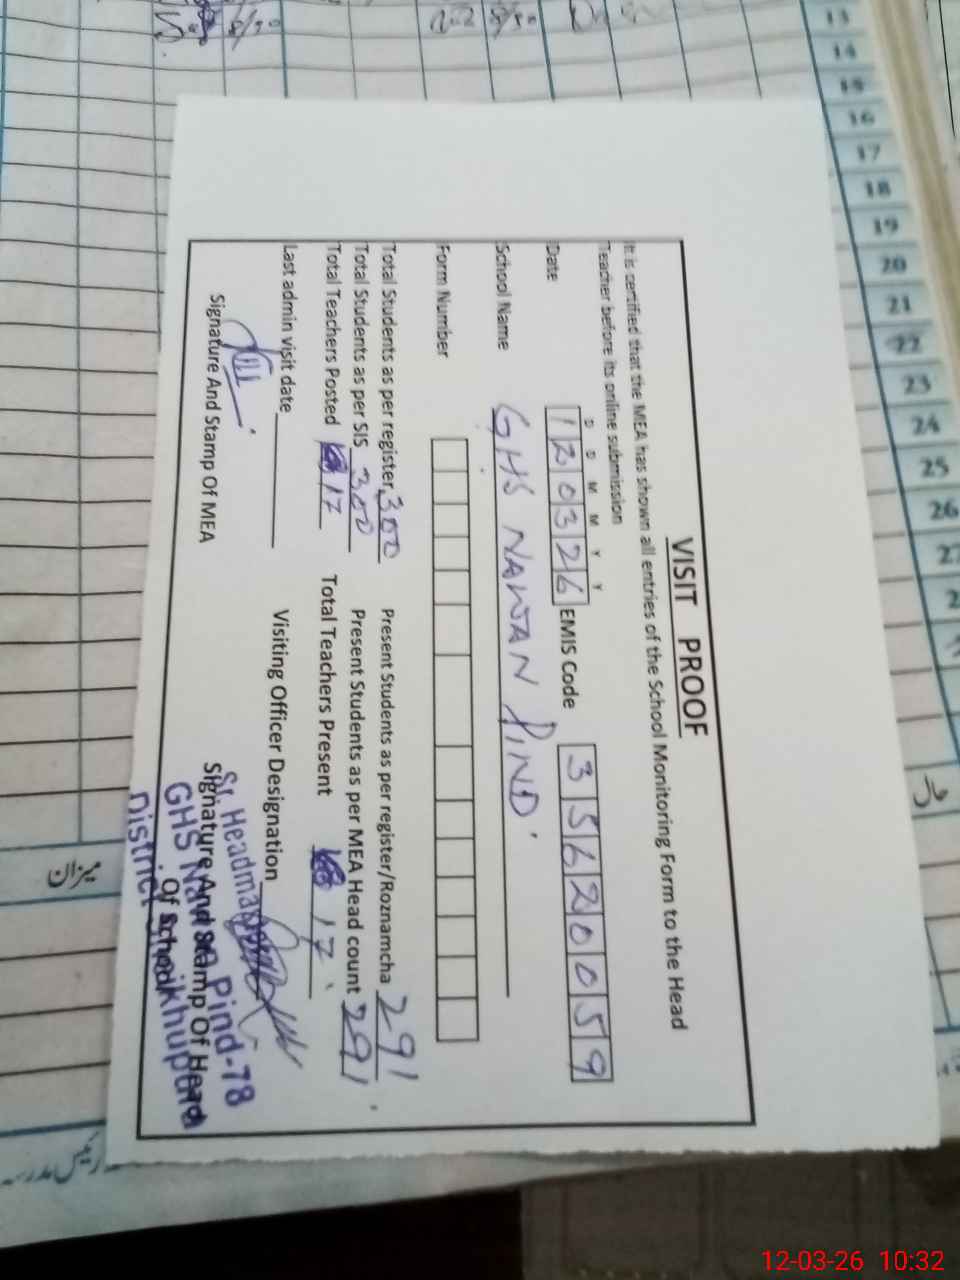 VISIT PROOF
It is certified that the MEA has shown all entries of the School Monitoring Form to the Head
Teacher before its online submission
D D M M Y Y
Date 120326 EMIS Code 35620059
School Name GHS NAWAN PIND
Form Number
Total Students as per register 300 Present Students as per register/Roznamcha 291
Total Students as per SIS 300 Present Students as per MEA Head count 291
Total Teachers Posted 17 Total Teachers Present 17
Last admin visit date Visiting Officer Designation
Signature And Stamp Of MEA Signature And Stamp Of Head
Of School
Sr. Headmaster
GHS Nawan Pind-78
District Sheikhupura
13
14
15
16
17
18
19
20
21
22
23
24
25
26
میزان
رئیس مدرسہ
12-03-26 10:32